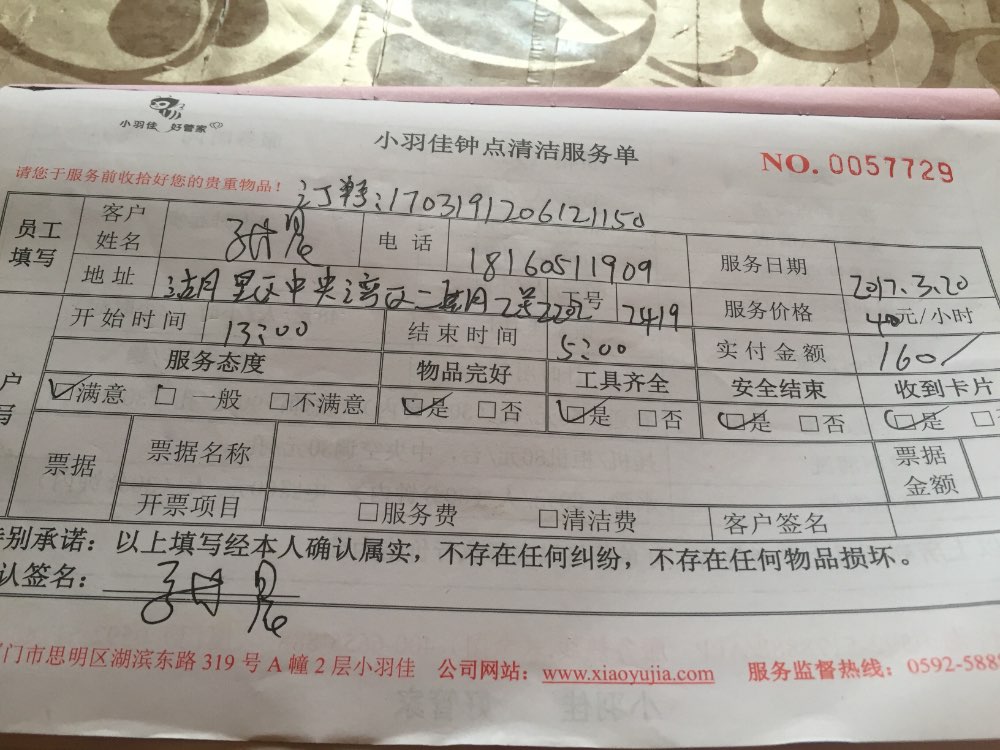 小羽佳 好管家
小羽佳钟点清洁服务单
NO. 0057729
请您于服务前收拾好您的贵重物品！
订单:1703191206121150
员工填写 客户姓名 电话 18160511909 服务日期 2017.3.20
地址 湖里区中央湾区二期 2202 工号 2419 服务价格 40元/小时
开始时间 13:00 结束时间 5:00 实付金额 160/
服务态度 物品完好 工具齐全 安全结束 收到卡片
户
写
☑满意 □一般 □不满意 ☑是 □否 ☑是 □否 ☑是 □否 ☑是 □
票据 票据名称 票据金额
开票项目 □服务费 □清洁费 客户签名
别承诺：以上填写经本人确认属实，不存在任何纠纷，不存在任何物品损坏。
认签名：
门市思明区湖滨东路 319 号 A 幢 2 层小羽佳 公司网站：www.xiaoyujia.com 服务监督热线：0592-588